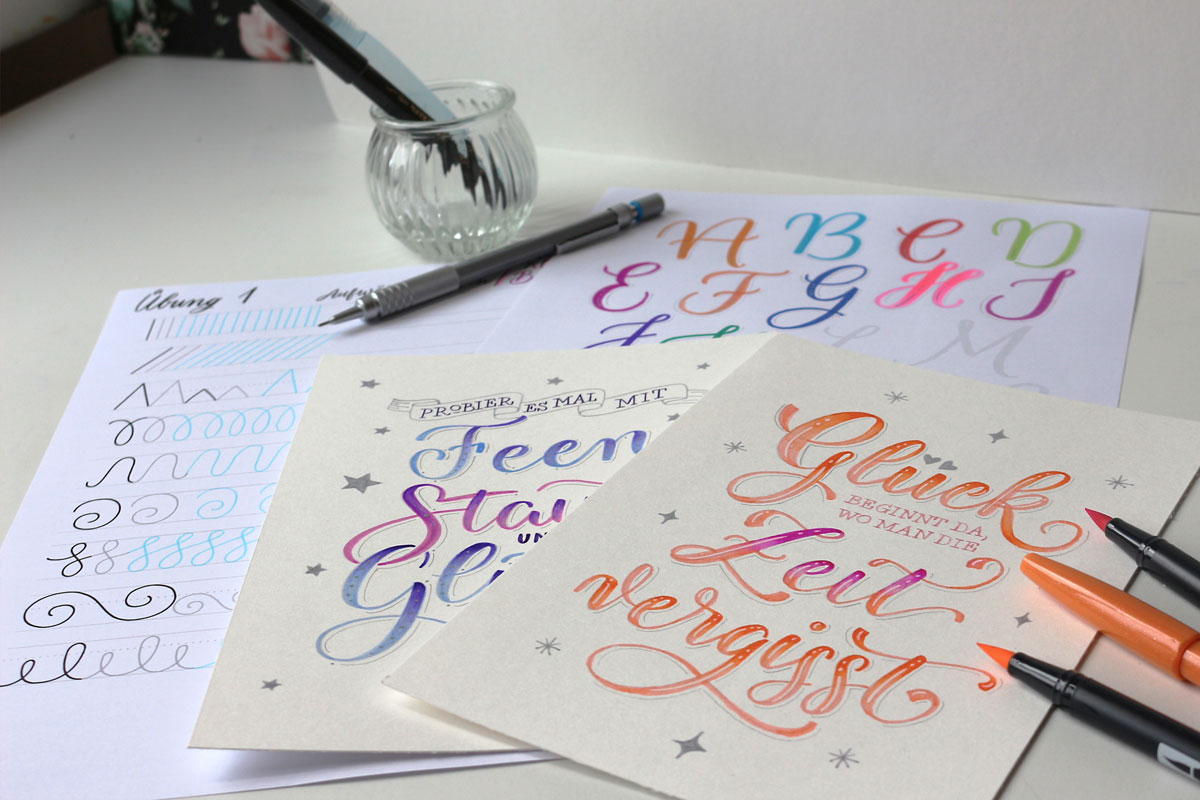 Übung 1
A B C D
E F G H I
M
PROBIER ES MAL MIT
Feen
UN
Glück
BEGINNT DA,
WO MAN DIE
Zeit
vergisst